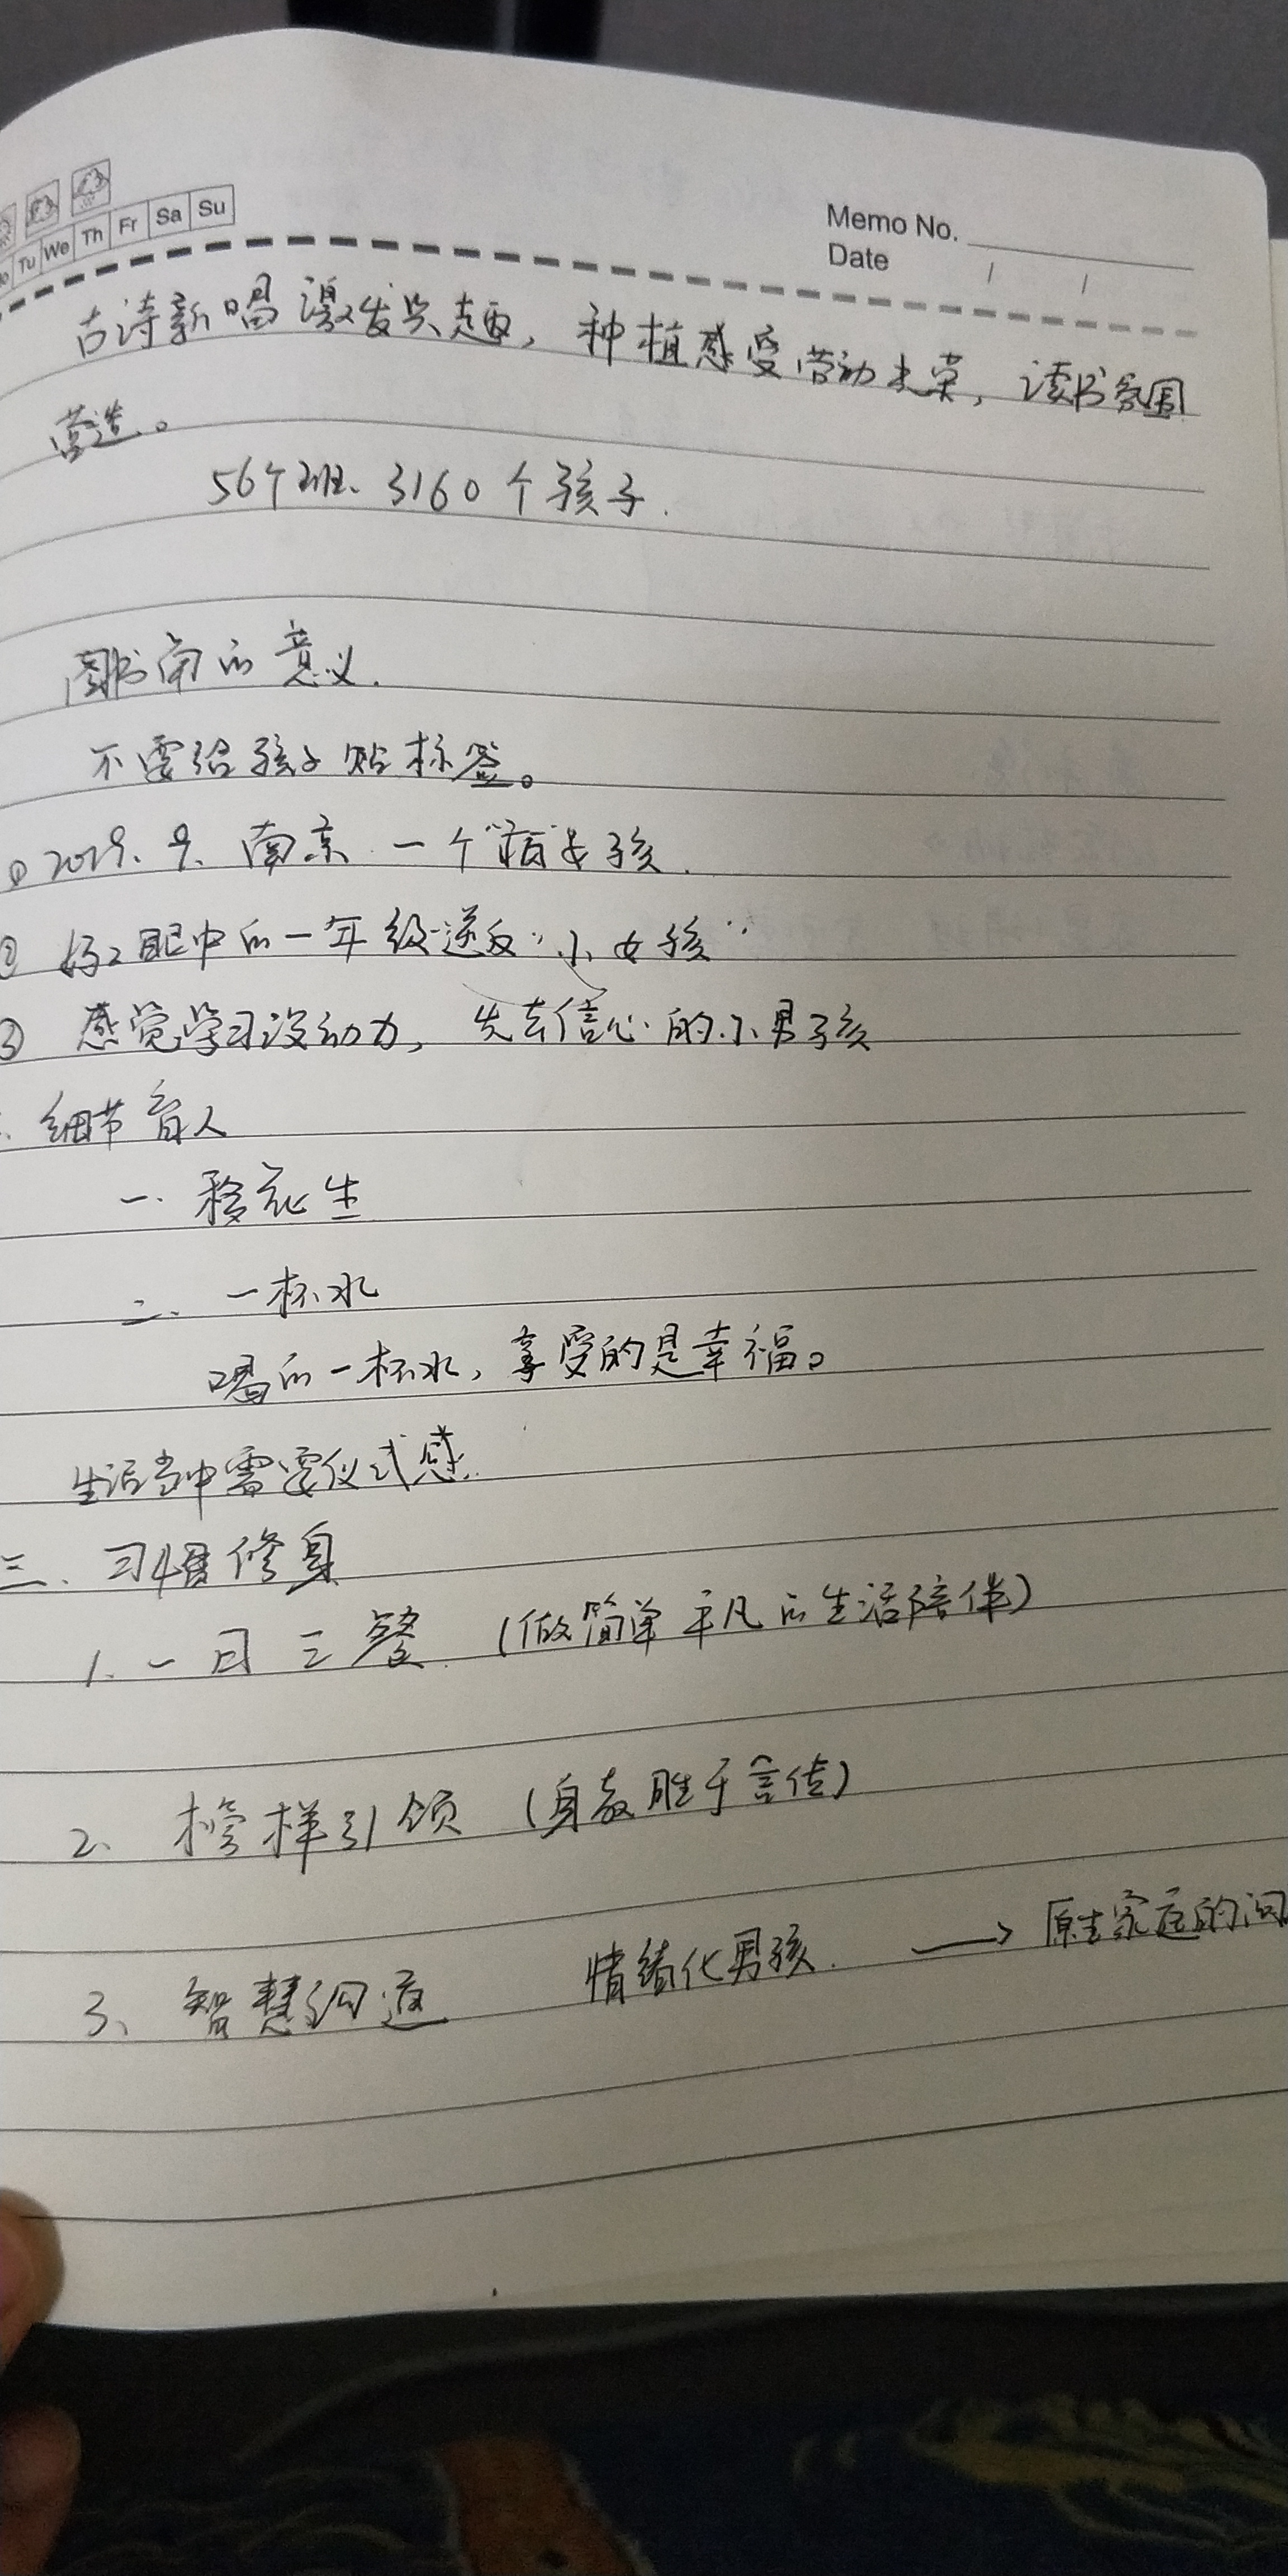 Tu We Th Fr Sa Su
Memo No.
Date / /
古诗新唱激发兴趣，种植感受劳动光荣，读书氛围
营造。
56个班、3160个孩子.
图书角的意义.
不要给孩子贴标签。
① 2019.9.南京 一个"病"女孩.
② 妈妈眼中的一年级"逆反"小女孩"
③ 感觉学习没动力，失去信心的小男孩
细节育人
一. 移花生
二、一杯水
喝的一杯水，享受的是幸福。
生活当中需要仪式感.
三、习惯修身
1. 一日三餐.（做简单平凡的生活陪伴）
2、榜样引领（身教胜于言传）
3、智慧沟通 情绪化男孩. → 原生家庭的问